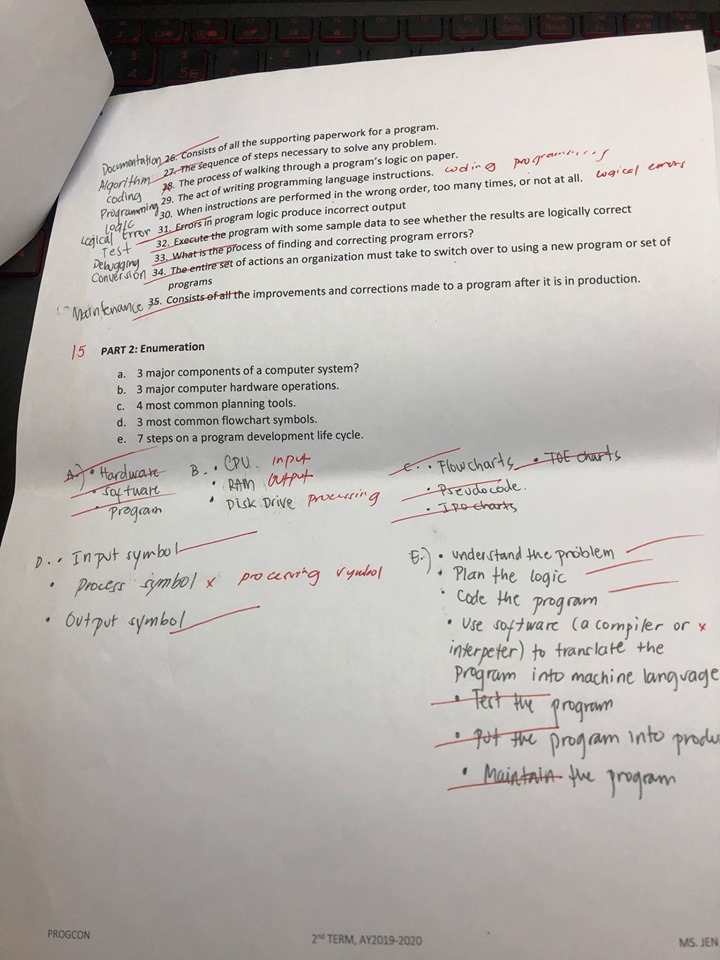 Documentation 26. Consists of all the supporting paperwork for a program.
Algorithm 27. The sequence of steps necessary to solve any problem.
coding 28. The process of walking through a program's logic on paper.
Programming 29. The act of writing programming language instructions. coding programming
Logic 30. When instructions are performed in the wrong order, too many times, or not at all. Logical errors
Logical Error 31. Errors in program logic produce incorrect output
Test 32. Execute the program with some sample data to see whether the results are logically correct
Debugging 33. What is the process of finding and correcting program errors?
Conversion 34. The entire set of actions an organization must take to switch over to using a new program or set of
programs
Maintenance 35. Consists of all the improvements and corrections made to a program after it is in production.
15 PART 2: Enumeration
a. 3 major components of a computer system?
b. 3 major computer hardware operations.
c. 4 most common planning tools.
d. 3 most common flowchart symbols.
e. 7 steps on a program development life cycle.
A.) • Hardware
• Software
• Program
B. • CPU input
• RAM output
• Disk Drive processing
C. • Flowcharts • TOE charts
• Pseudocode.
• IPO charts
D. • Input symbol
• Process symbol x processing symbol
• Output symbol
E.) • understand the problem
• Plan the logic
• Code the program
• Use software (a compiler or x
interpeter) to translate the
program into machine language
• Test the program
• Put the program into produ
• Maintain the program
PROGCON
2nd TERM, AY2019-2020
MS. JEN